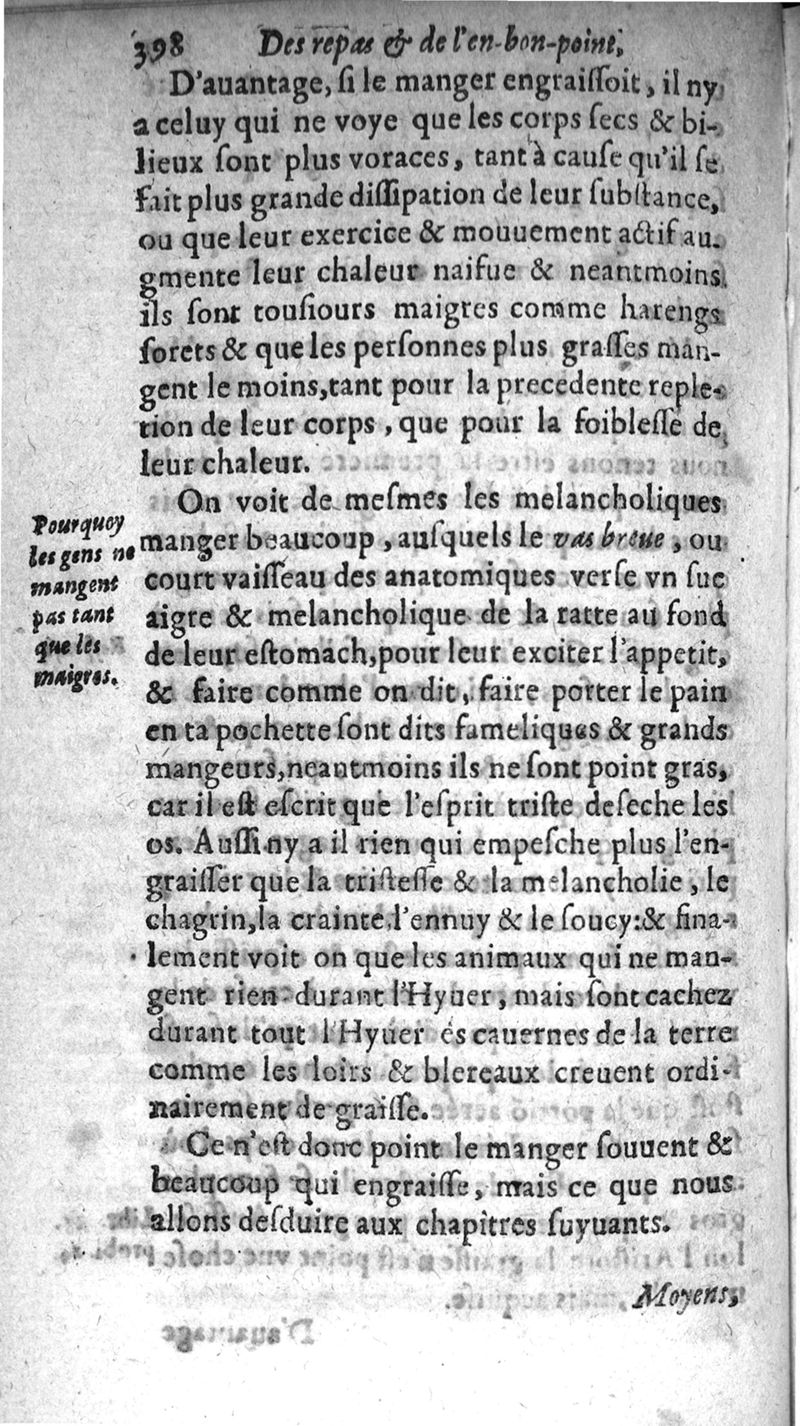 398 Des repas & de l'en-bon-point,
D'auantage, ſi le manger engraiſſoit, il ny
a celuy qui ne voye que les corps ſecs & bi-
lieux ſont plus voraces, tant à cauſe qu'il ſe
fait plus grande diſſipation de leur ſubſtance,
ou que leur exercice & mouuement actif au-
gmente leur chaleur naifue & neantmoins
ils ſont touſiours maigres comme harengs
ſorets & que les perſonnes plus graſſes man-
gent le moins, tant pour la precedente reple-
tion de leur corps, que pour la foibleſſe de
leur chaleur.
On voit de meſmes les melancholiques
manger beaucoup, auſquels le vas breue, ou
court vaiſſeau des anatomiques verſe vn ſuc
aigre & melancholique de la ratte au fond
de leur eſtomach, pour leur exciter l'appetit,
& faire comme on dit, faire porter le pain
en ta pochette ſont dits fameliques & grands
mangeurs, neantmoins ils ne ſont point gras,
car il eſt eſcrit que l'eſprit triſte deſeche les
os. Auſſi ny a il rien qui empeſche plus l'en-
graiſſer que la triſteſſe & la melancholie, le
chagrin, la crainte, l'ennuy & le ſoucy: & fina-
lement voit on que les animaux qui ne man-
gent rien durant l'Hyuer, mais ſont cachez
durant tout l'Hyuer és cauernes de la terre
comme les loirs & blereaux creuent ordi-
nairement de graiſſe.
Ce n'eſt donc point le manger ſouuent &
beaucoup qui engraiſſe, mais ce que nous
allons deſduire aux chapitres ſuyuants.
Moyens,
Pourquoy
les gens ne
mangent
pas tant
que les
maigres.